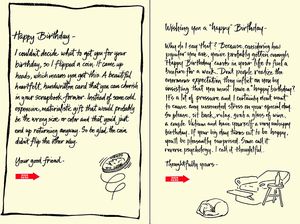 Happy Birthday -
I couldn't decide what to get you for your
birthday, so I flipped a coin. It came up
heads, which means you get this: A beautiful
heartfelt, handwritten card that you can cherish
in your scrapbook, forever. Instead of some cold,
expensive, materialistic gift that would probably
be the wrong size or color and that you'd just
end up returning anyway. So be glad the coin
didn't flip the other way.
Your good friend -
Wishing you a "happy" Birthday -
Why do I say that? Because, considering how
popular you are, you're probably getting enough
Happy Birthday cards in your life to fuel a
bonfire for a week. Don't people realize the
enormous expectation they inflict on you by
insisting that you must have a "happy birthday?"
It's a lot of pressure and I certainly don't want
to cause any unwanted stress on your special day
so please, sit back, relax, grab a glass of wine,
a couple Valium and have yourself a very unhappy
birthday. If your big day turns out to be happy,
you'll be pleasantly surprised. Some call it
reverse psychology, I call it thoughtful.
Thoughtfully yours -